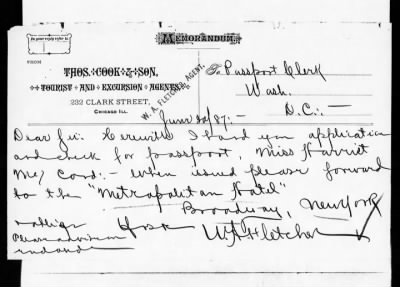 In your reply refer to
MEMORANDUM.
FROM
THOS. COOK & SON,
TOURIST AND EXCURSION AGENTS,
232 CLARK STREET,
CHICAGO ILL.
W. A. FLETCHER, AGENT.
To Passport Clerk
Wash.
D.C. :-
June 20/87 :-
Dear Sir: Herewith I hand you application
and check for passport, Miss Harriet
Mc/ Cord :- when issued please forward
to the "Metropolitan Hotel"
Broadway, New York
& oblige
Please advise me
W A Fletcher